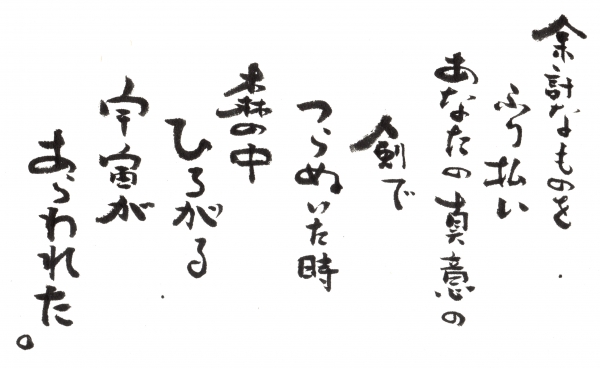 余計なものを
ふり払い
あなたの真意の
剣で
つらぬいた時
森の中
ひろがる
宇宙が
あらわれた。